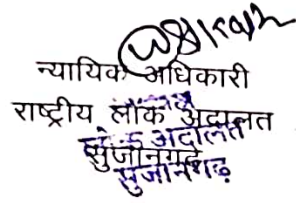 न्यायिक अधिकारी
राष्ट्रीय लोक अदालत
लोक अदालत
सुजानगढ़
सुजानगढ़